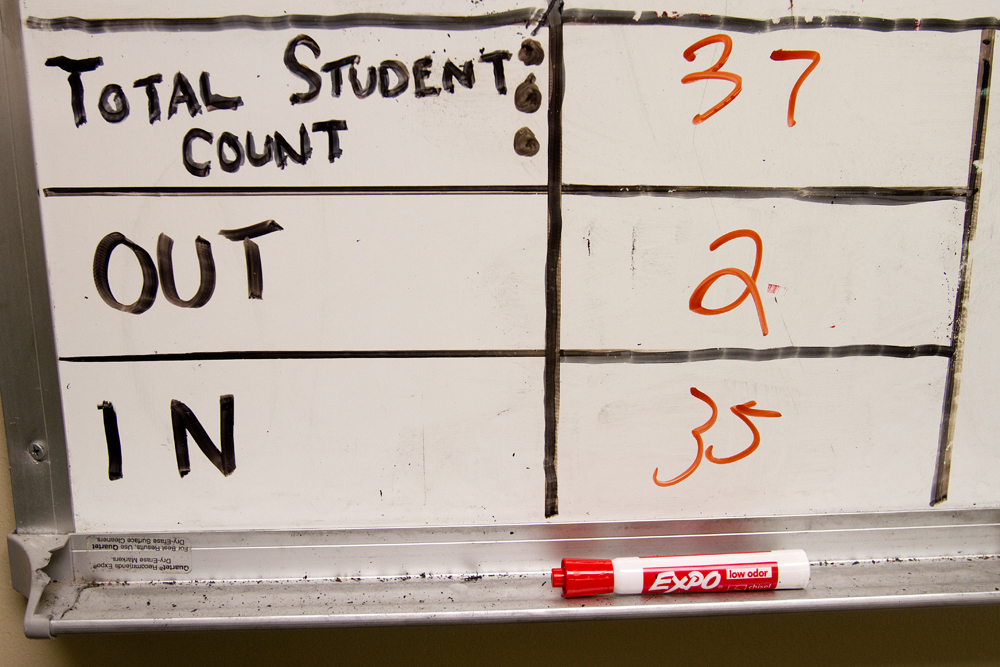 TOTAL STUDENT
COUNT
37
OUT
2
IN
35
Quartet® Recommends Expo®
Dry-Erase Markers.
For Best Results, Use Quartet
Dry-Erase Surface Cleaners.
EXPO low odor
chisel